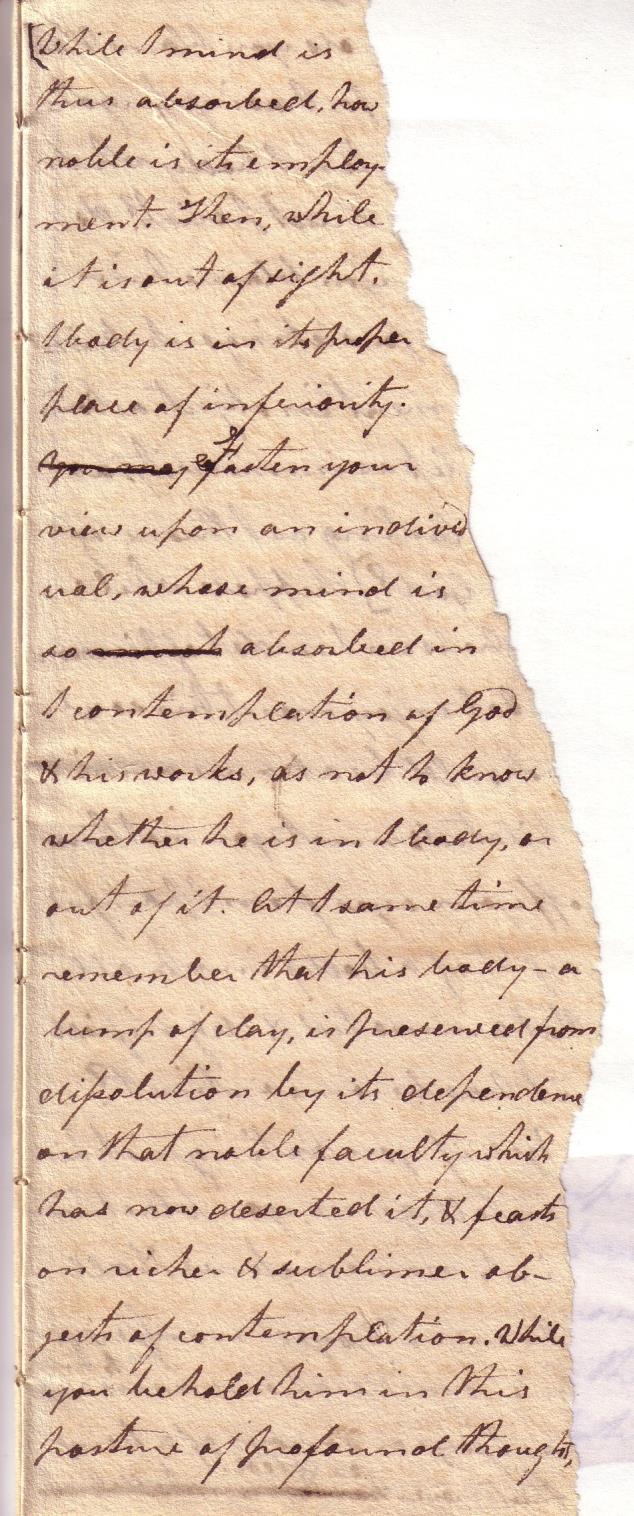 [While t mind is
thus absorbed, how
noble is its employ-
ment. Then, while
it is out of sight,
t body is in its proper
place of inferiority.
You may Fasten your
view upon an individ
ual, whose mind is
so much absorbed in
t contemplation of God
& his works, as not to know
whether he is in t body, or
out of it. At t same time
remember that his body – a
lump of clay, is preserved from
dissolution by its dependence
on that noble faculty which
has now deserted it, & feasts
on richer & sublimer ob-
jects of contemplation. While
you behold him in this
posture of profound thought,